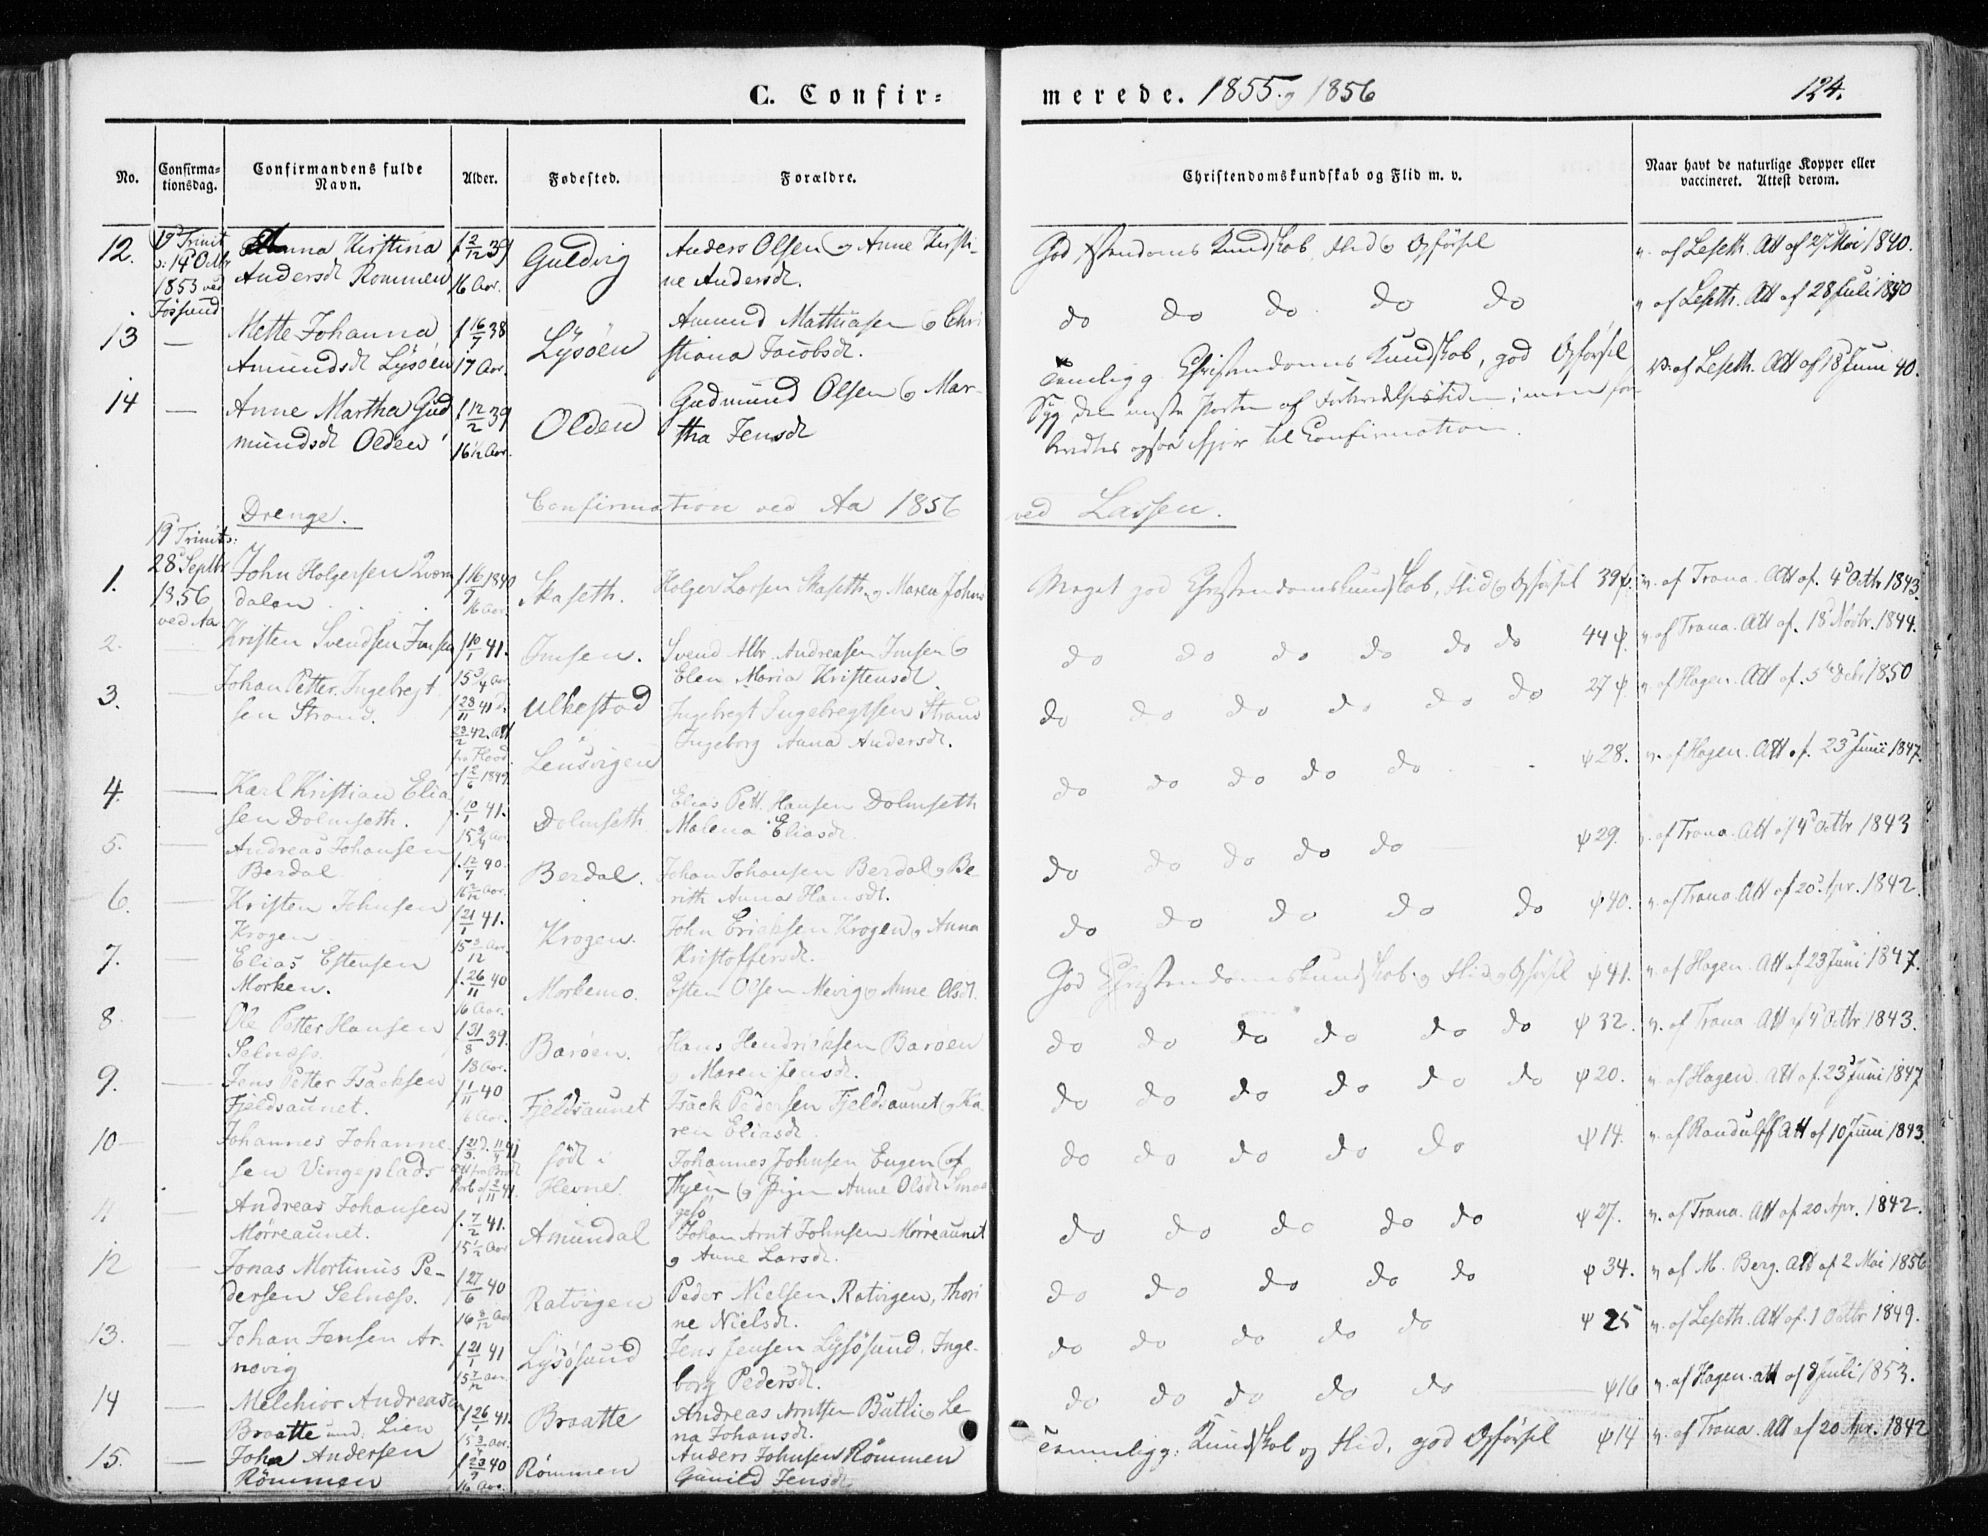 C. Confir=
merede. 1855 og 1856
124.
No.
Confirma-
tionsdag.
Confirmandens fulde
Navn.
Alder.
Fødested.
Forældre.
Christendomskundskab og Flid m. v.
Naar havt de naturlige Kopper eller
vaccineret. Attest derom.
12.
19 Trinit
1855 ved
Jøssund
Anna Kirstina
Andersdt Rommen
f 2/12 39
16 Aar.
Guldvig
Anders Olsen og Anne Kirsti-
ne Andersdt.
God Xstendoms Kundskab, Flid og Opførsel
v. af Leseth. Att af 27 Mai 1840.
13
—
Mette Johanna
Amundsdt Lysøen
f 16/7 38
17 Aar.
Lysøen
Amund Mathiasen og Chri
stiana Jacobsdt.
do do do do do
v af Leseth. Att af 28 Juli 1840
14
—
Anne Martha Gud
mundsdt Olden
f 12/2 39
16½ Aar.
Olden
Gudmund Olsen og Mar-
tha Jensdt
Temelig g. Christendoms Kundskab, god Opførsel
Syg den meste Parten af
ogsaa ifjor til Confirmation.
v. af Leseth. Att af 18 Juni 40.
Drenge.
Confirmation ved Aa 1856
ved Lassen.
1.
19 Trinit:
28 Septbr
1856
ved Aa
John Holgersen Qvern
dalen
f 16/9 1840
16 Aar.
Skaseth.
Holger Larsen Skaseth og Maren Johns
Meget god Christendomskundskab, Flid og Opførsel 39
v. af Trana. Att af. 4 Octbr 1843.
2.
Kristen Svendsen Imsen
f 10/1 41.
15¾ Aar
Imsen.
Svend Albr. Andreasen Imsen og
Elen Maria Kristensdt
do do do do do do 44
v. af Trana. Att af. 18 Novbr. 1844.
3.
Johan Petter Ingebregt
sen Strand.
f 23/11 41 d.
Ulkestad
Lensvigen
Ingebregt Ingebregtsen Strand
Ingeborg Anna Andersdt.
do do do do do do 27
v. af Hagen. Att af. 5 Decbr 1850
4.
Karl Kristian Elia
sen Dolmseth.
f. 10/1 41.
15¾ Aar
Dolmseth
Elias Pett. Hansen Dolmseth
Malena Eliasdt.
do do do do do 28.
v. af Hagen. Att. af. 23 Juni 1847.
5.
Andreas Johansen
Berdal
f. 12/7 40.
16 2/12 Aar.
Berdal.
Johan Johansen Berdal og Be-
rith Anna Hansdt.
do do do do do 29.
v. af Trana. Att af 4 Octbr 1843
6.
Kristen Johnsen
Krogen
f 21/1 41.
Krogen.
John Ericksen Krogen og Anna
Kristoffersdt.
do do do do do 40.
v. af Trana Att af 20 Apr. 1842.
7.
Elias Estensen
Morken.
f. 26/11 40
16 Aar.
Morkemo.
Esten Olsen Mevig og Anne Olsdt.
God Christendomskundskab og Flid og Opførsel 41.
v. af Hagen. Att af 23 Juni 1847.
8.
Ole Petter Hansen
Selnæss.
f 31/8 39.
Barøen.
Hans Hendricksen Barøen
og Maren Jensdt.
do do do do do do 32.
v. af Trana Att af 4 Octbr 1843.
9.
Jens Petter Isacksen
Fjeldsaunet.
f 1/11 40
16 Aar.
Fjeldsaunet
Isack Pedersen Fjeldsaunet og Ka-
ren Eliasdt
do do do do do do 20.
v. af Hagen. Att af. 23 Juni 1847
10
Johannes Johanne
sen Vingeplads
født i
Hevne.
Johannes Johnsen Eugen (af
do do do do do 14.
v. af Randulff Att af 10 Juni 1843.
11
Andreas Johansen
Mørreaunet.
f. 7/2 41.
15½ Aar
Amundal
Johan Arnt Johnsen Mørreaunet
og Anne Larsdt.
do do do do do 27.
v. af Trana. Att af 20 Apr. 1842.
12
Jonas Mortinus Pe-
dersen Selnæss.
f 27/6 40
16 3/12 Aar
Ratvigen
Peder Nielsen Ratvigen, Thori
ne Nielsdt.
do do do do do 34.
v af M. Berg. Att af 2 Mai 1856
13.
Johan Jensen Ar-
nevig
f 21/1 41
Lysøsund
Jens Jensen Lysøsund. Inge-
borg Pedersdt.
do do do do do 25
v. af Leseth. Att af. 1 Octbr 1849.
14
Melchior Andreasen
Braatte und. Lien
f 26/1 41.
15¾ Aar.
Braatte
Andreas Arntsen Butli og Le
na Johansdt.
do do do do do 16
v. af Hagen. att af 8 Juli 1853.
15.
Johan Andersen
Rømmen
f 23/9 40
16 Aar.
Rømmen
Anders Johnsen Rømmen
Gunild Jensdt
Temmelig g. Kundskab og Flid, god Opførsel 14
v. af Trana. Att af 20 Apr. 1842